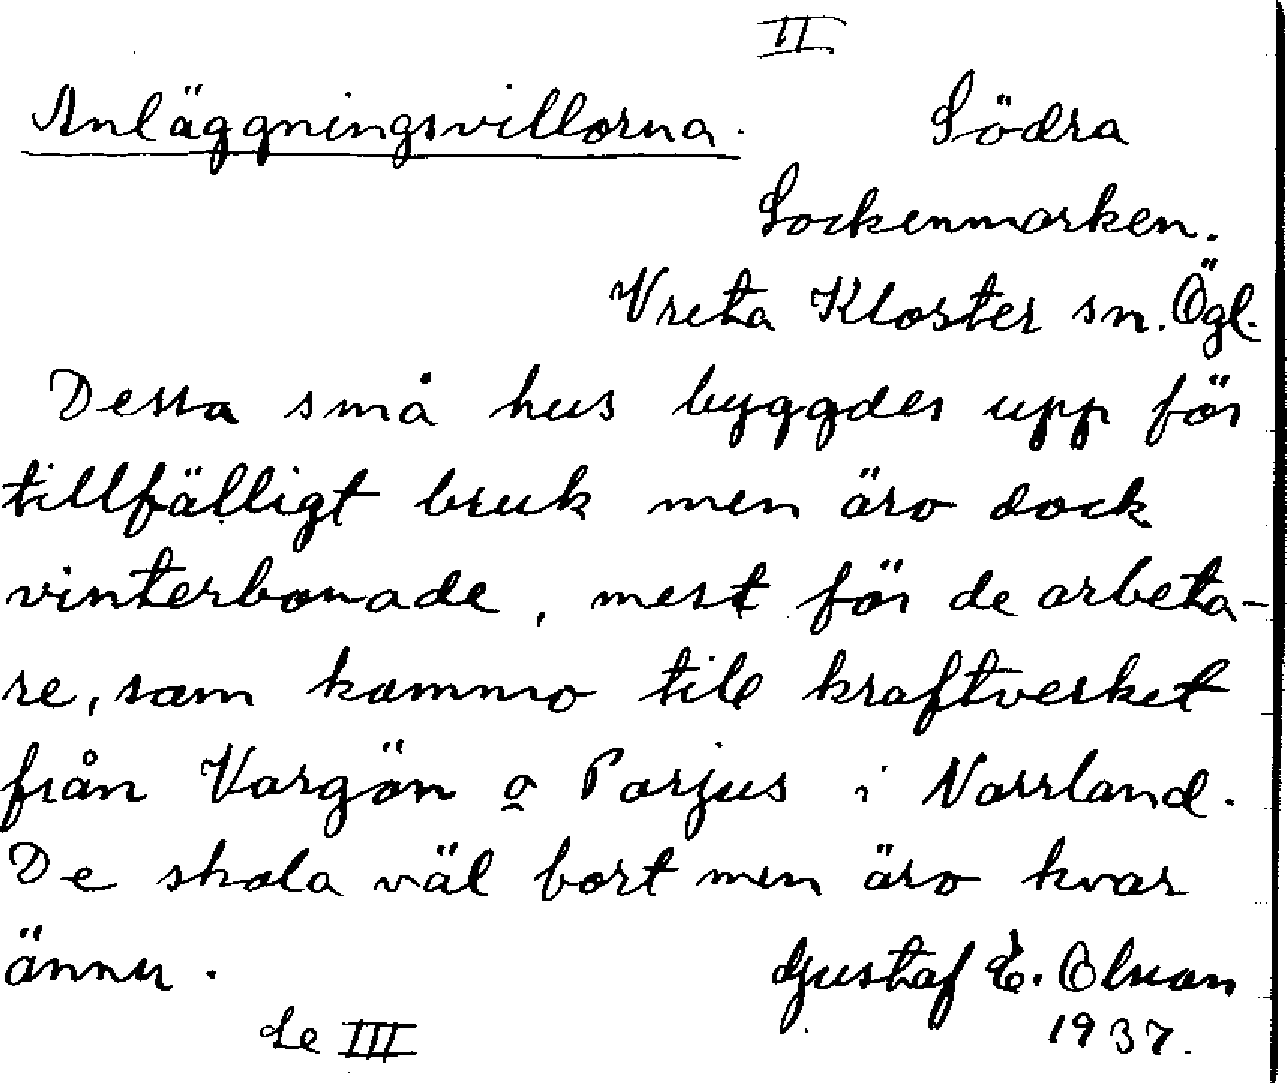 II
Anläggningsvillorna. Södra
Sockenmarken.
Vreta Kloster sn. Ögl.
Dessa små hus byggdes upp för
tillfälligt bruk men äro dock
vinterbonade, mest för de arbeta-
re, som kommo till kraftverket
från Vargön o Porjus i Norrland.
De skola väl bort men äro kvar
ännu.
Gustaf E. Olsson
Se III 1937.